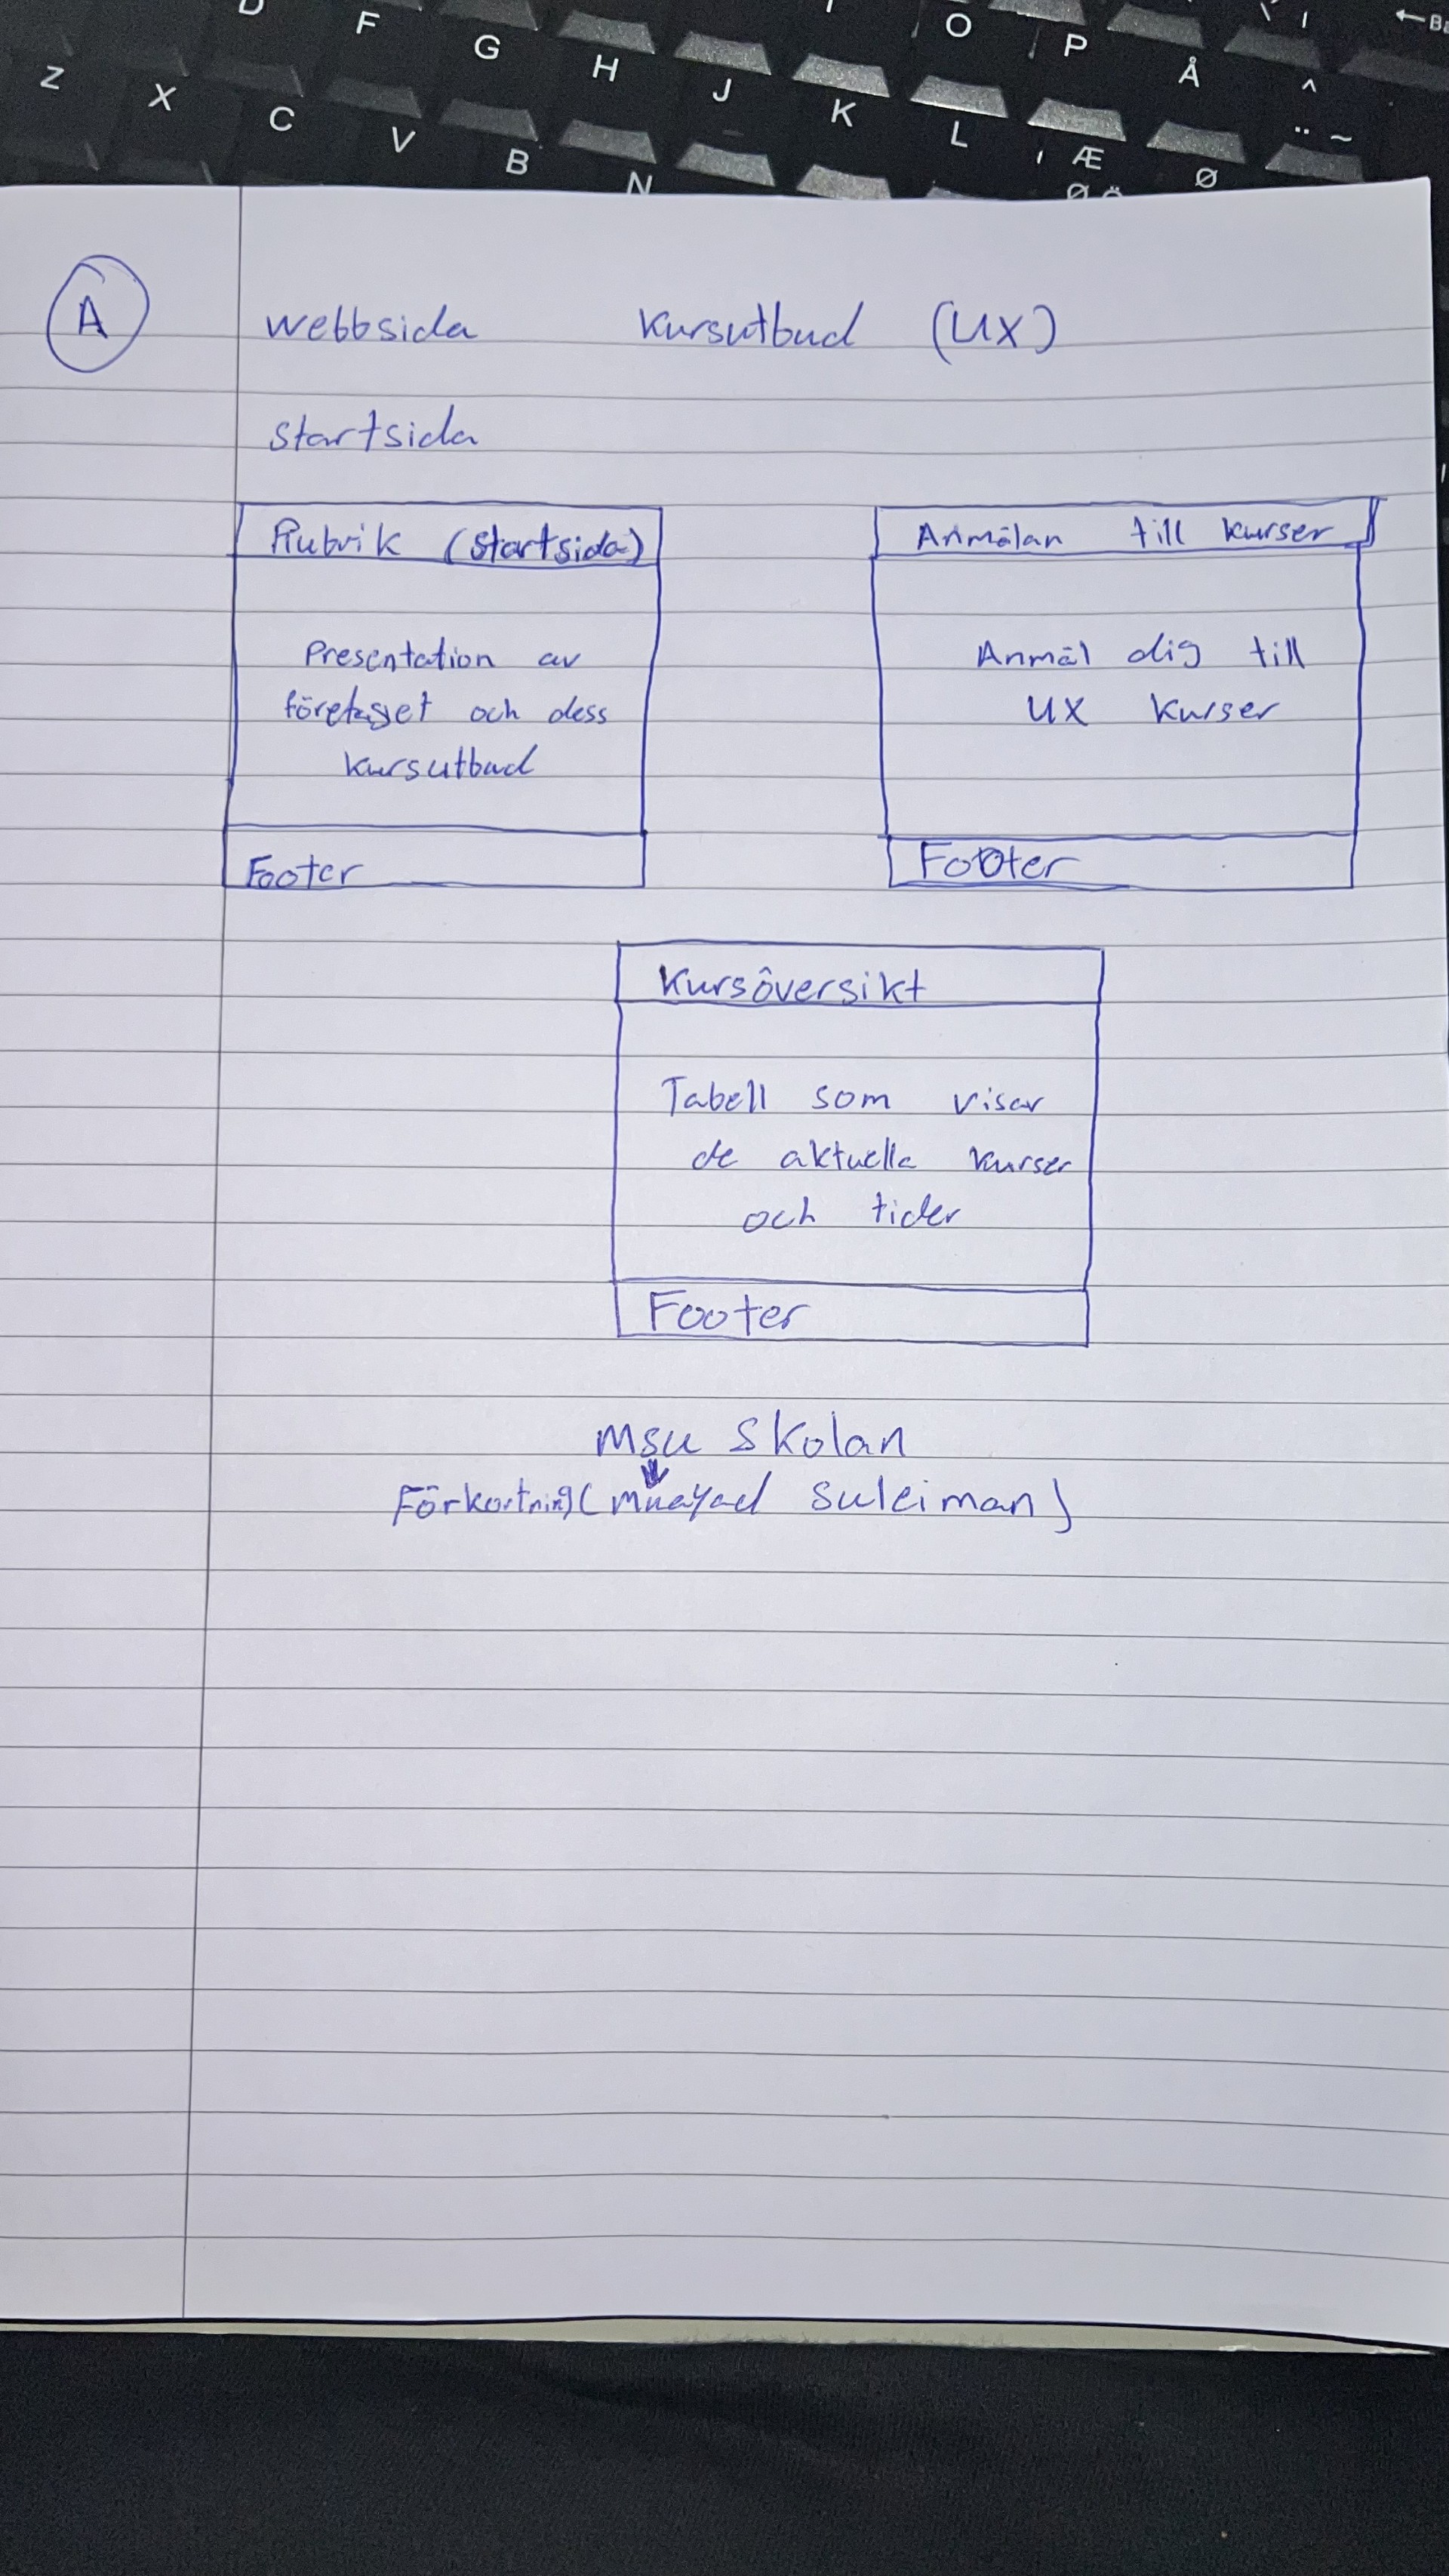 D F G H J K L O P Å ^ ¨ ~ ← Ba
Z X C V B N Æ Ø
Ø Ö
A
Webbsida Kursutbud (UX)
Startsida
Rubrik (Startsida)
Presentation av
företaget och dess
kursutbud
Footer
Anmälan till kurser
Anmäl dig till
UX kurser
Footer
Kursöversikt
Tabell som visar
de aktuella kurser
och tider
Footer
MSU Skolan
Förkortning (Muayad Suleiman)